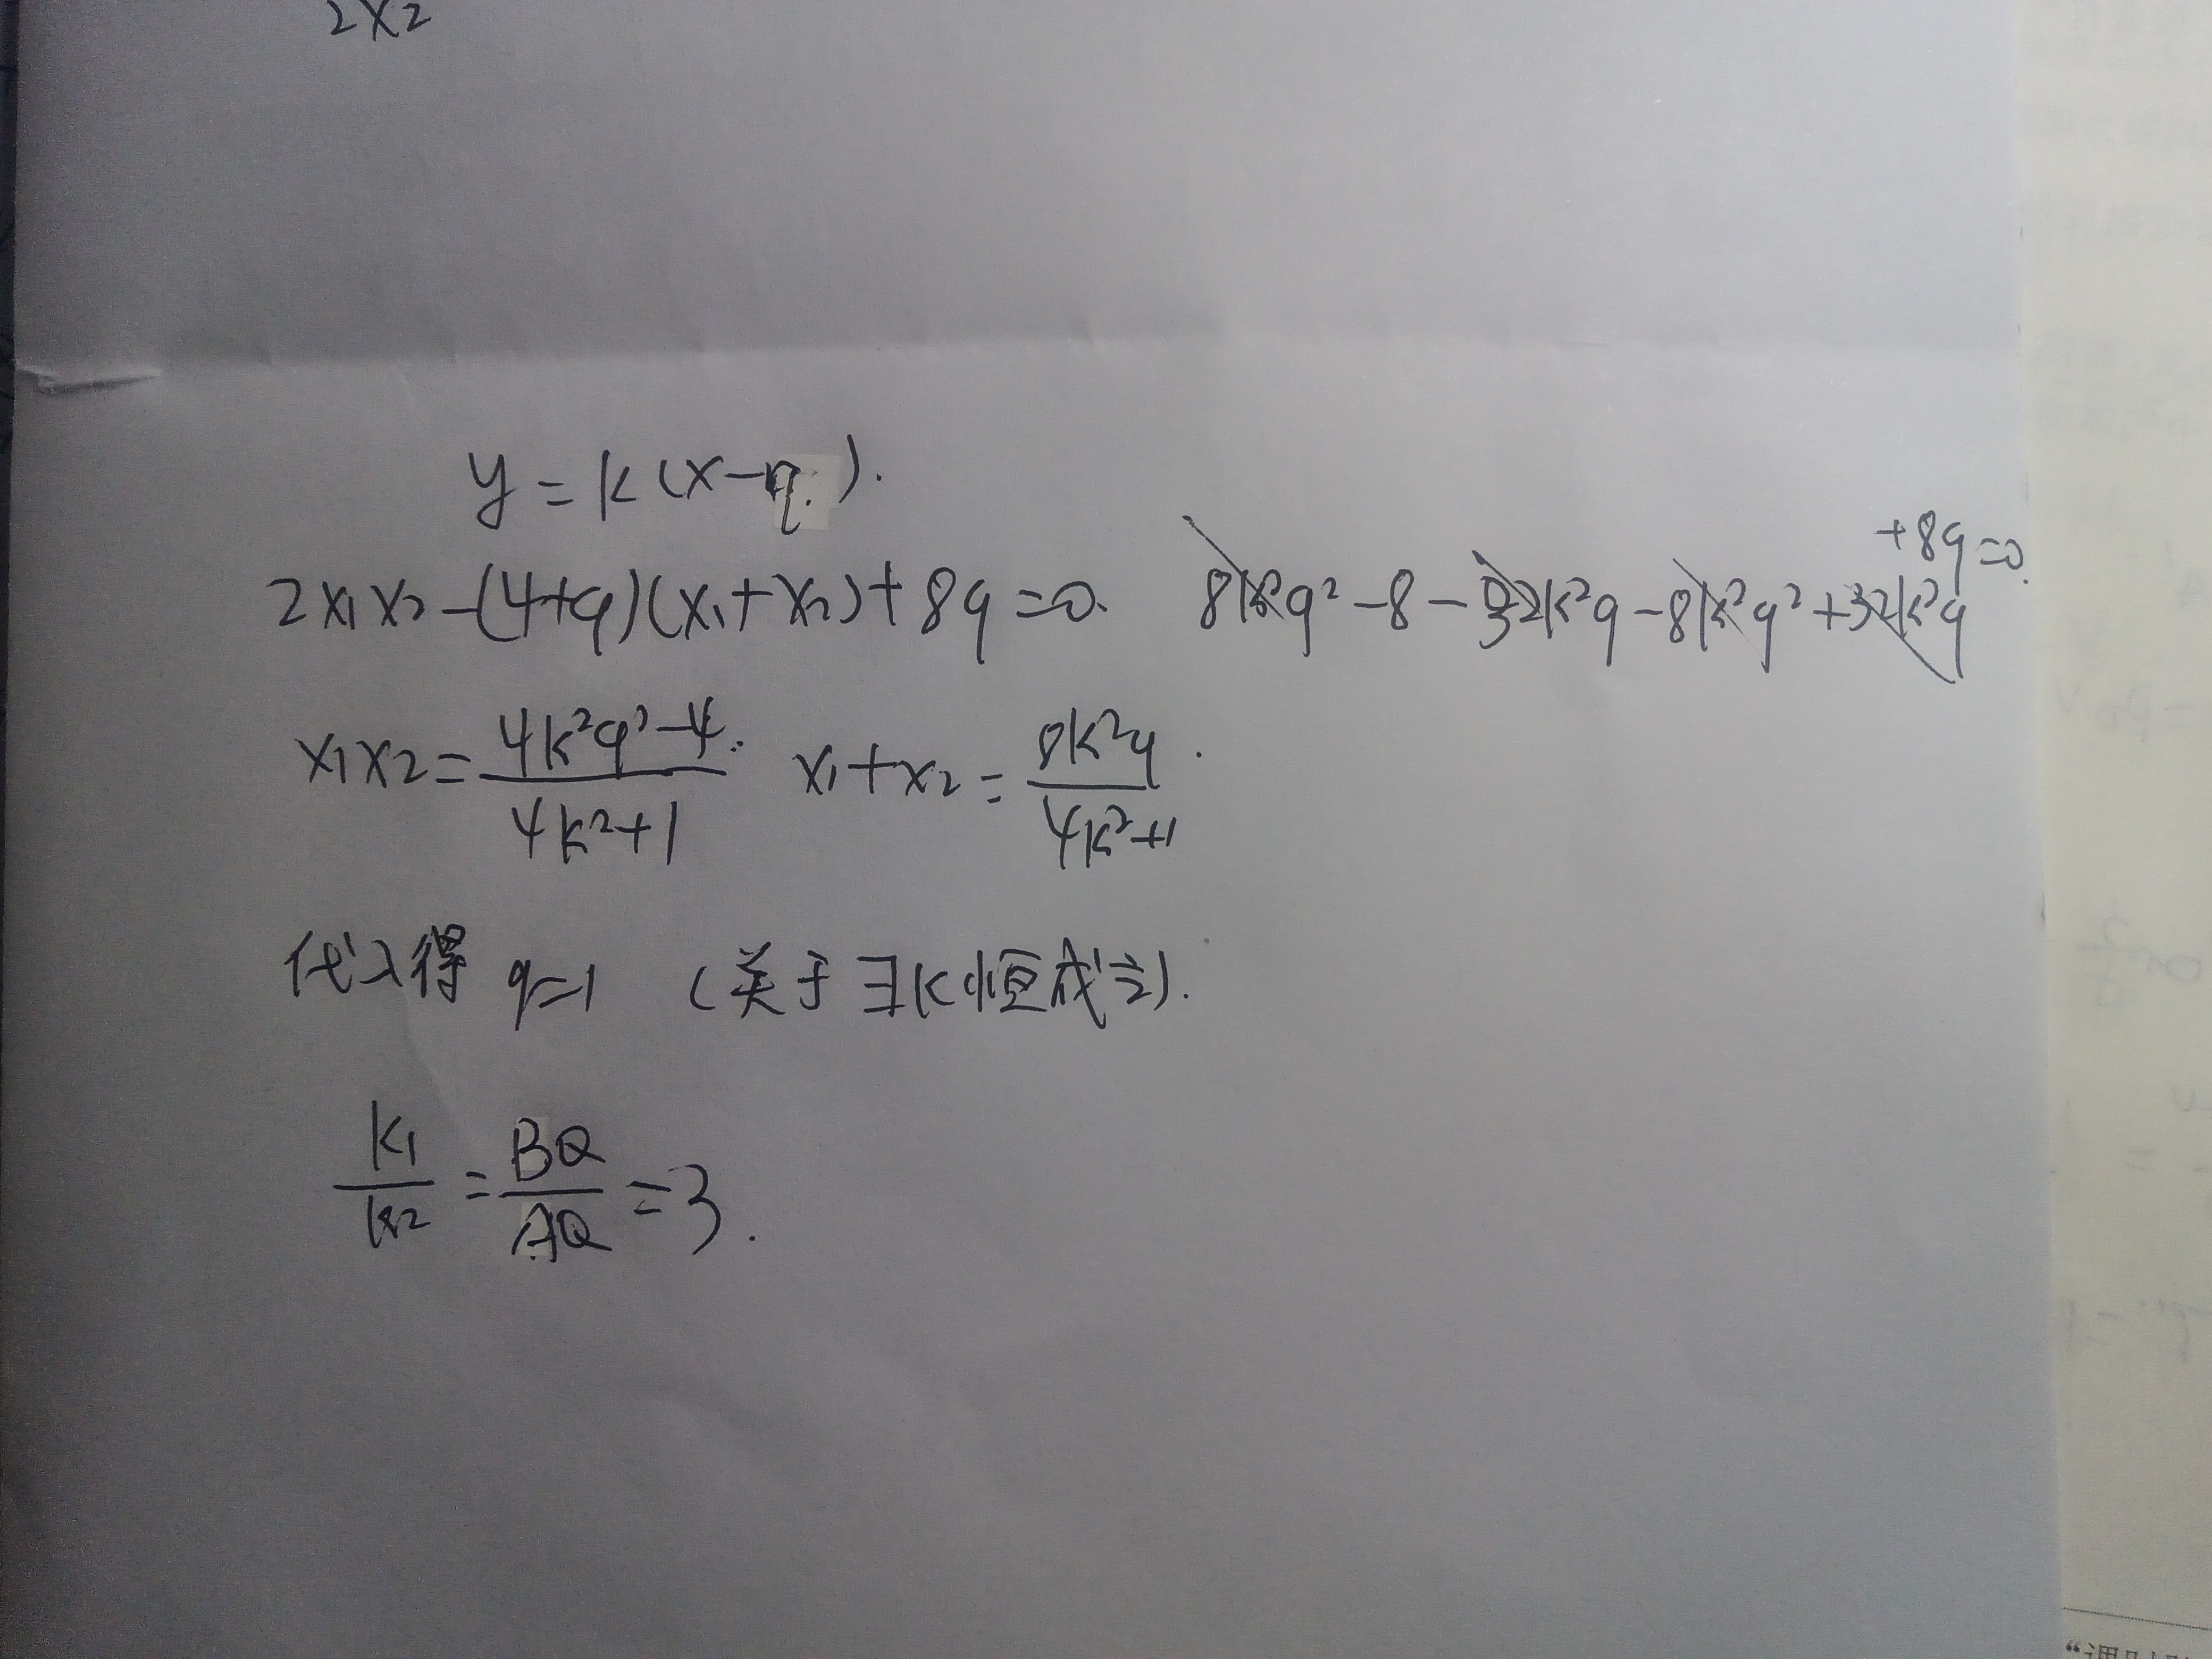 2x2
y=k(x-q).
2x₁x₂-(4+q)(x₁+x₂)+8q=0. 8k²q²-8-32k²q-8k²q²+32k²q+8q=0.
x₁x₂=(4k²q²-4)/(4k²+1). x₁+x₂=8k²q/(4k²+1).
代入得 q=1 (关于∃k恒成立).
k₁/k₂=BQ/AQ=3.